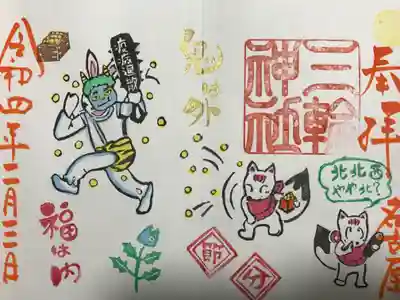 奉拝
名古屋
三輪
神社
北北西
やや北に?
鬼は外
節分
疫病退散
福は内
令和四年二月三日